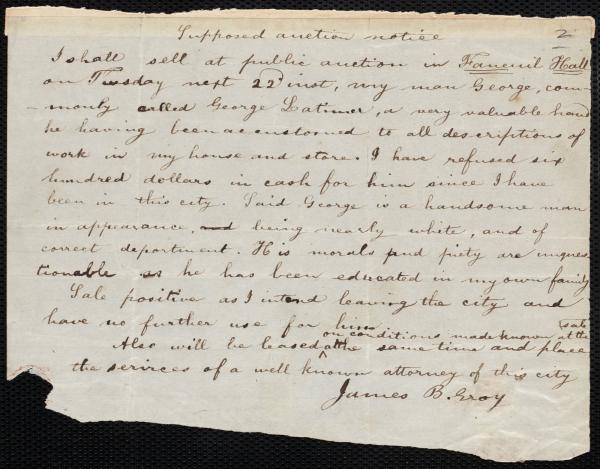 Supposed auction notice 2
I shall sell at public auction in Faneuil Hall
on Tuesday next 22d inst, my man George, com-
monly called George Latimer, a very valuable hand
he having been accustomed to all descriptions of
work in my house and store. I have refused six
hundred dollars in cash for him since I have
been in this city. Said George is a handsome man
in appearance, and being nearly white, and of
correct department. His morals and piety are unques
tionable as he has been educated in my own family
Sale positive as I intend leaving the city and
have no further use for him
on conditions made known at the sale
Also will be leased at the same time and place
the services of a well known attorney of this city
James B. Gray